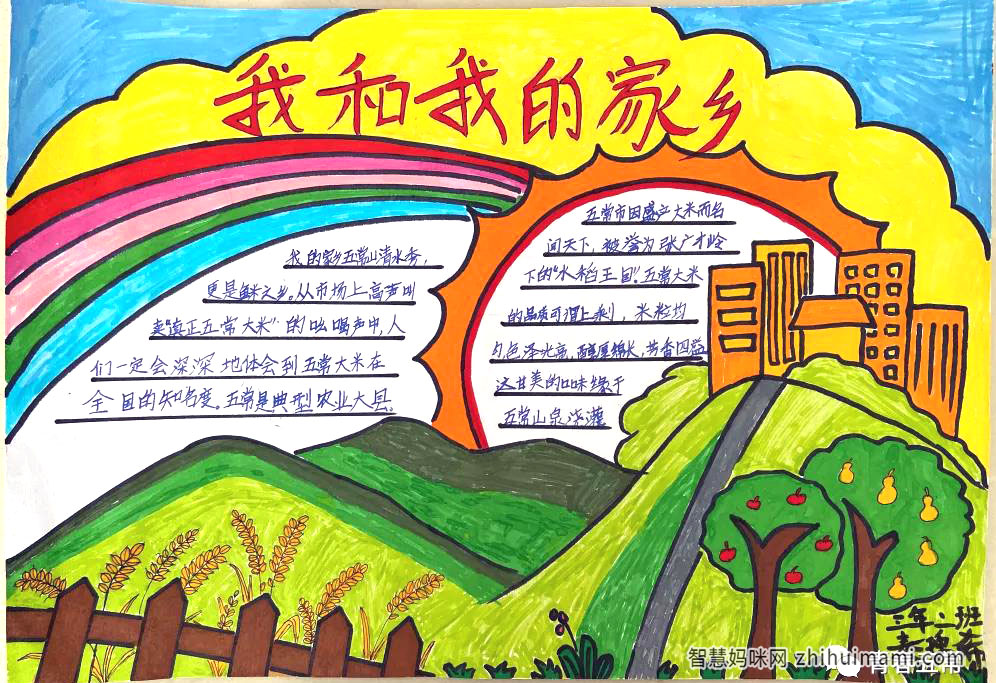 我和我的家乡
我的家乡五常山清水秀，
更是鱼米之乡。从市场上高声叫
卖“真正五常大米”的吆喝声中，人
们一定会深深地体会到五常大米在
全国的知名度。五常是典型农业大县。
五常市因盛产大米而名
闻天下，被誉为张广才岭
下的“水稻王国”。五常大米
的品质可谓上乘，米粒均
匀色泽光亮，醇厚绵长，芳香四溢
这甘美的口味缘于
五常山泉浇灌
三年二班
智慧妈咪网 zhihuimami.com